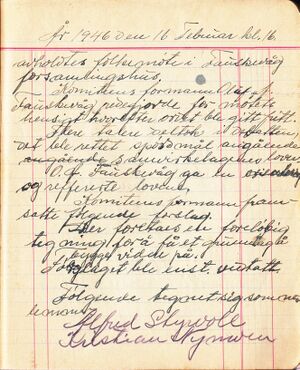 År 1946 den 16 Februar kl. 16
avholdtes folkemøte i Fauskevåg
forsamlingshus.
Komiteens formann Olaf J.
Fauskevåg redegjorde for møtets
hensigt hvorefter ordet ble gitt fritt.
Flere talere deltok i debatten,
det ble rettet spørsmål angående
angående samvirkelagenes lover.
O. J. Fauskevåg ga en
og refferete lovene.
Komiteens formann frem-
satte følgende forslag.
Her foretaes en foreløbig
tegning for å få et grunnlag å
bygge videre på.
Forslaget ble enst. vedtatt.
Følgende tegnet sig som med-
lemmer
Alfred
Kristian